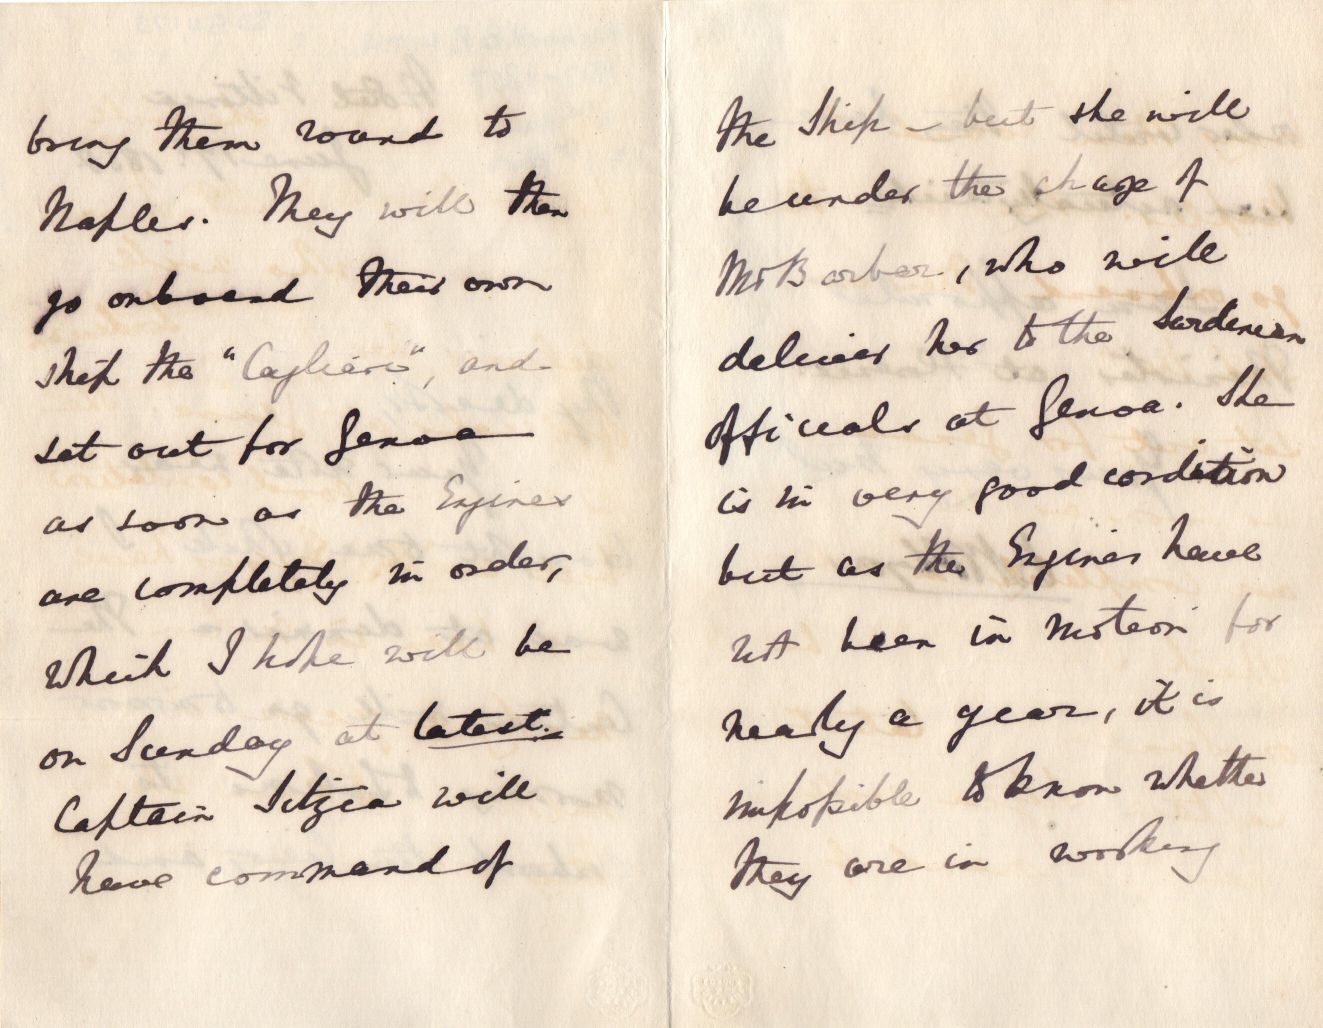 bring them round to
Naples. They will then
go onboard their own
ship the "Cagliari", and
set out for Genoa
as soon as the Engines
are completely in order,
which I hope will be
on Sunday at latest.
Captain Sitzia will
have command of
the Ship – but she will
be under the charge of
Mr Barbar, who will
deliver her to the Sardinian
officials at Genoa. She
is in very good condition
but as the Engines have
not been in motion for
nearly a year, it is
impossible to know whether
they are in working